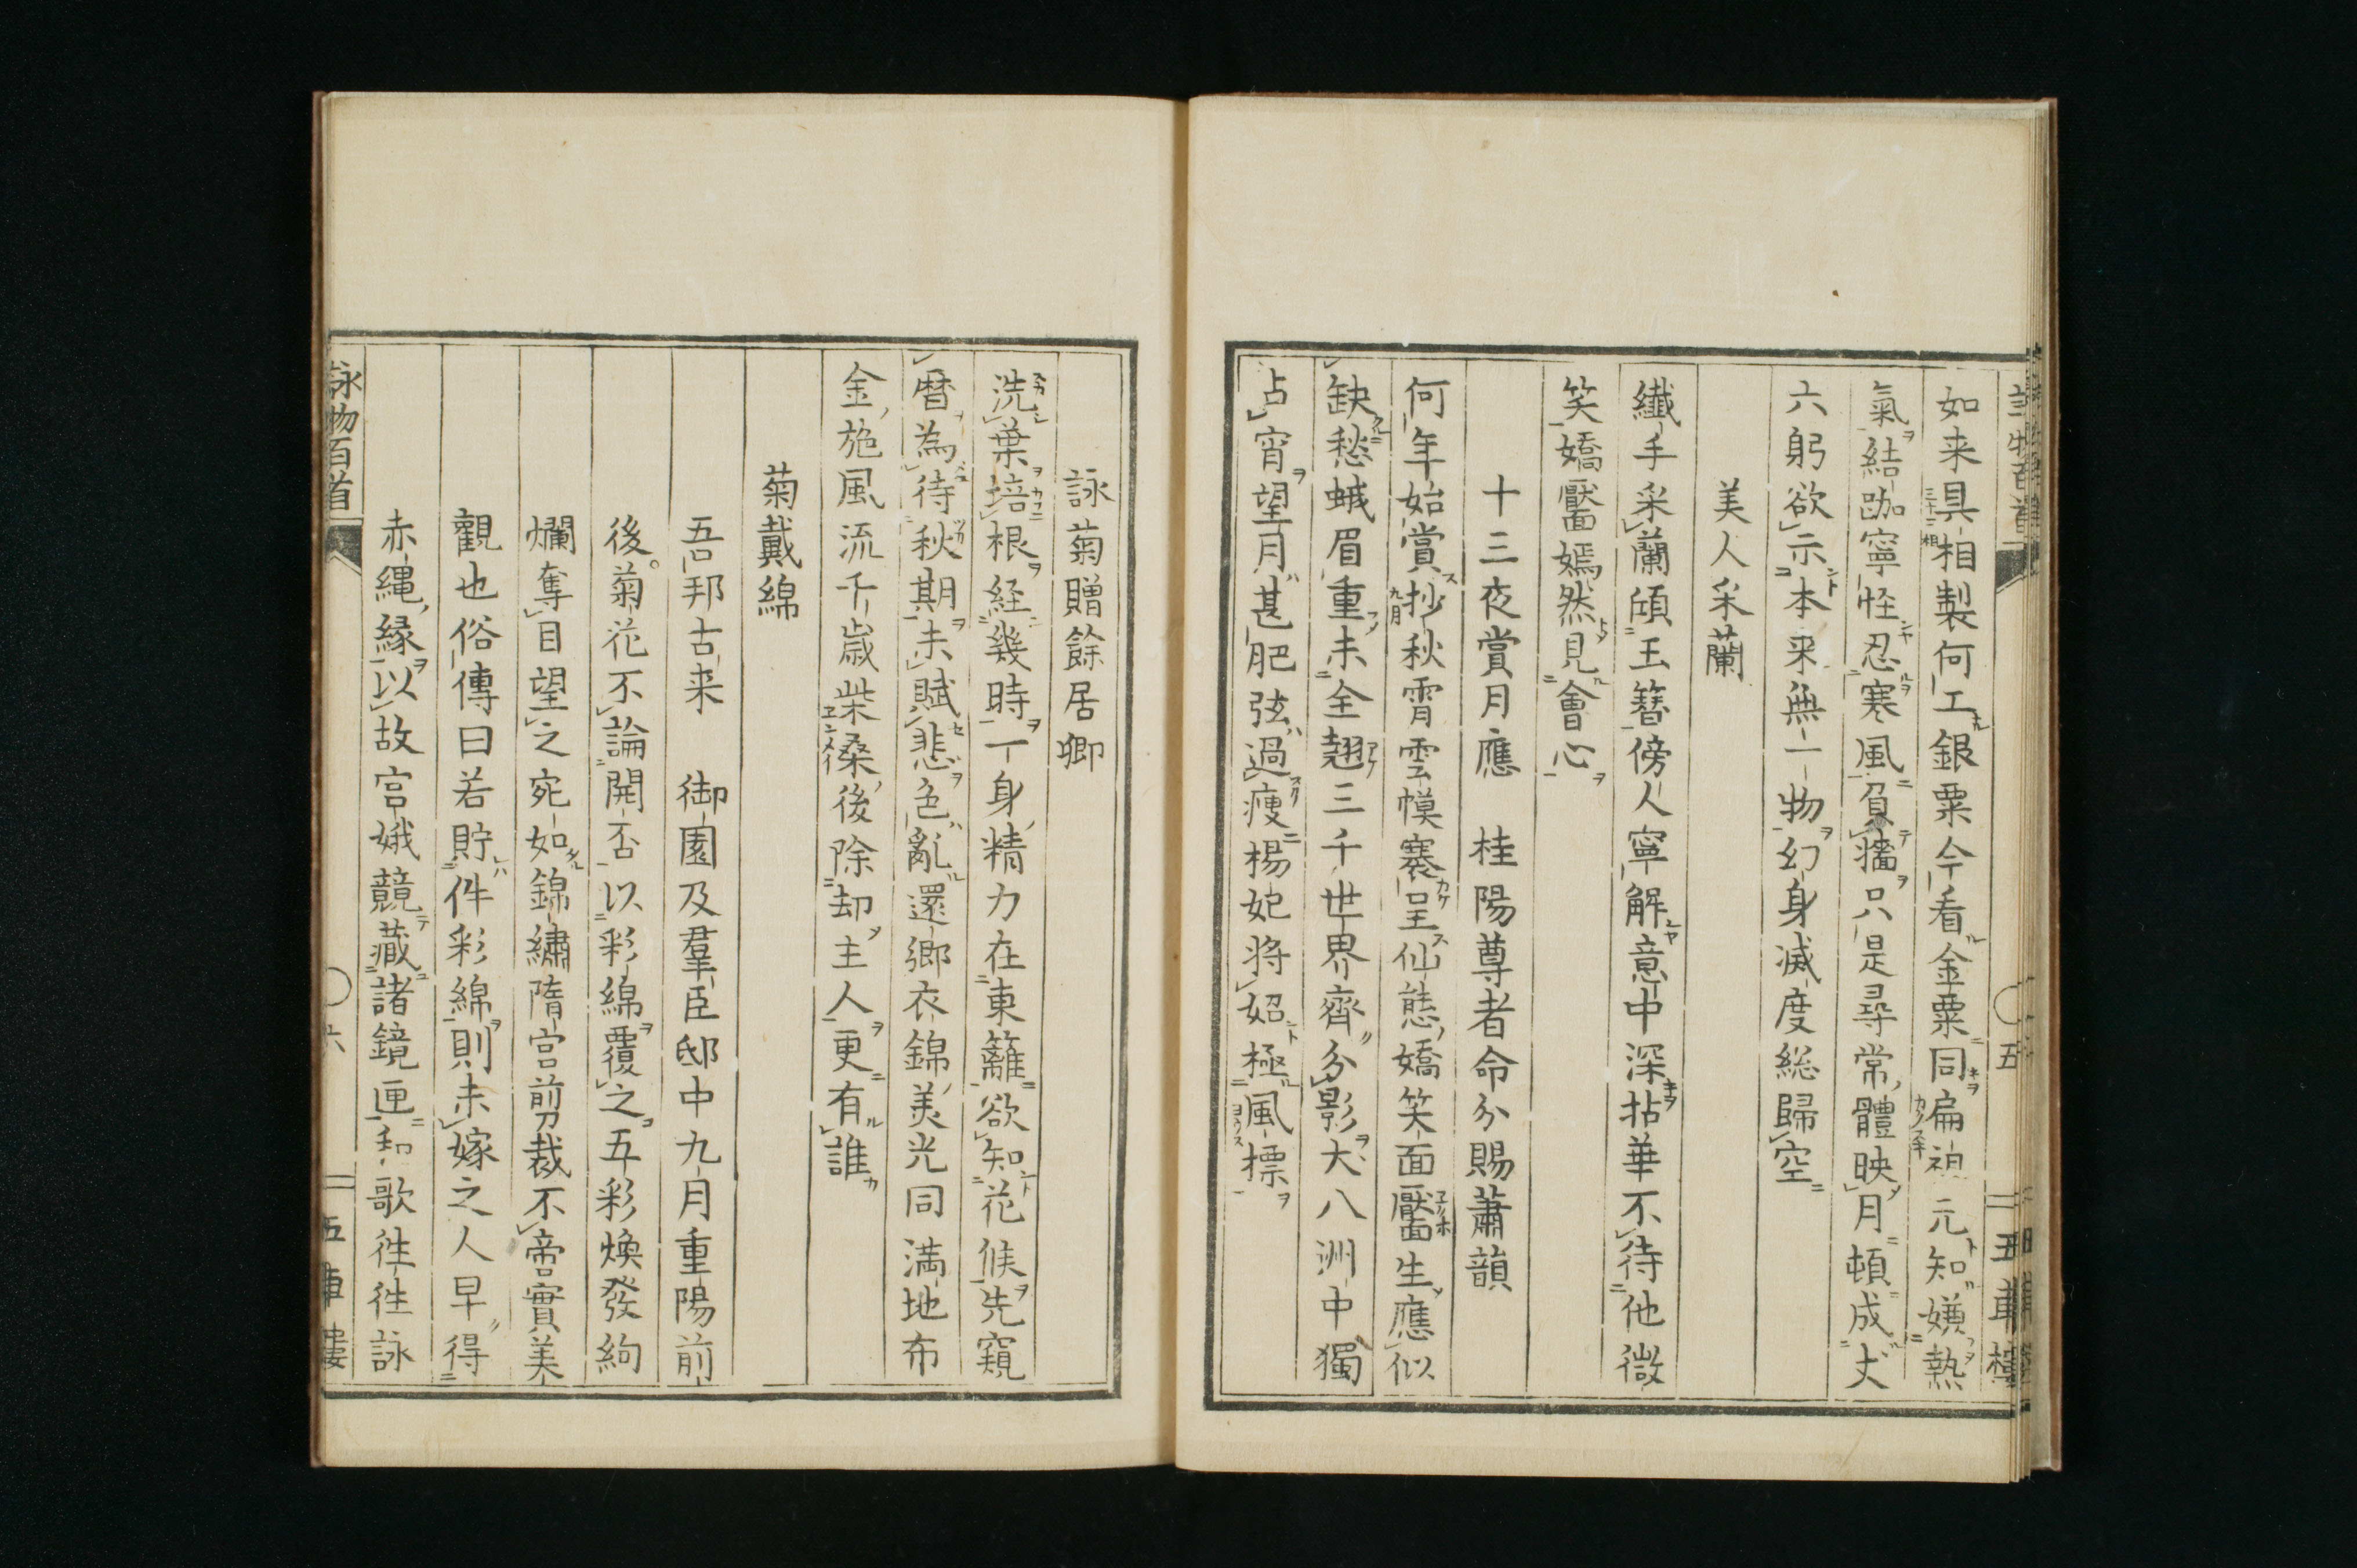 如来具相製何工銀粟今看金粟同扁袒元知嫌熱
氣結跏寧怪忍寒風負牆只是尋常體映月頓成丈
六躬欲示本来無一物幻身滅度総歸空
美人采蘭
纎手采蘭傾玉簪傍人寧解意中深拈華不待他微
笑嬌靨嫣然見會心
十三夜賞月應　桂陽尊者命分賜蕭韻
何年始賞抄秋霄雲幙褰呈仙態嬌笑面靨生應似
缺愁蛾眉重未全翹三千世界齊分影大八洲中獨
占宵望月甚肥弦過痩楊妃将妃極風標
詠菊贈餘居卿
洗葉培根経幾時一身精力在東籬欲知花候先窺
暦為待秋期未賦悲色亂還郷衣錦美光同満地布
金施風流千歳柴桑後除却主人更有誰
菊戴綿
吾邦古来　御園及羣臣邸中九月重陽前
後菊花不論開否以彩綿覆之五彩煥發絢
爛奪目望之宛如錦繡隋宮前剪裁不啻實美
觀也俗傳曰若貯件彩綿則未嫁之人早得
赤縄縁以故宮娥競藏諸鏡匣和歌徃徃詠
詠物百首
六
五車樓